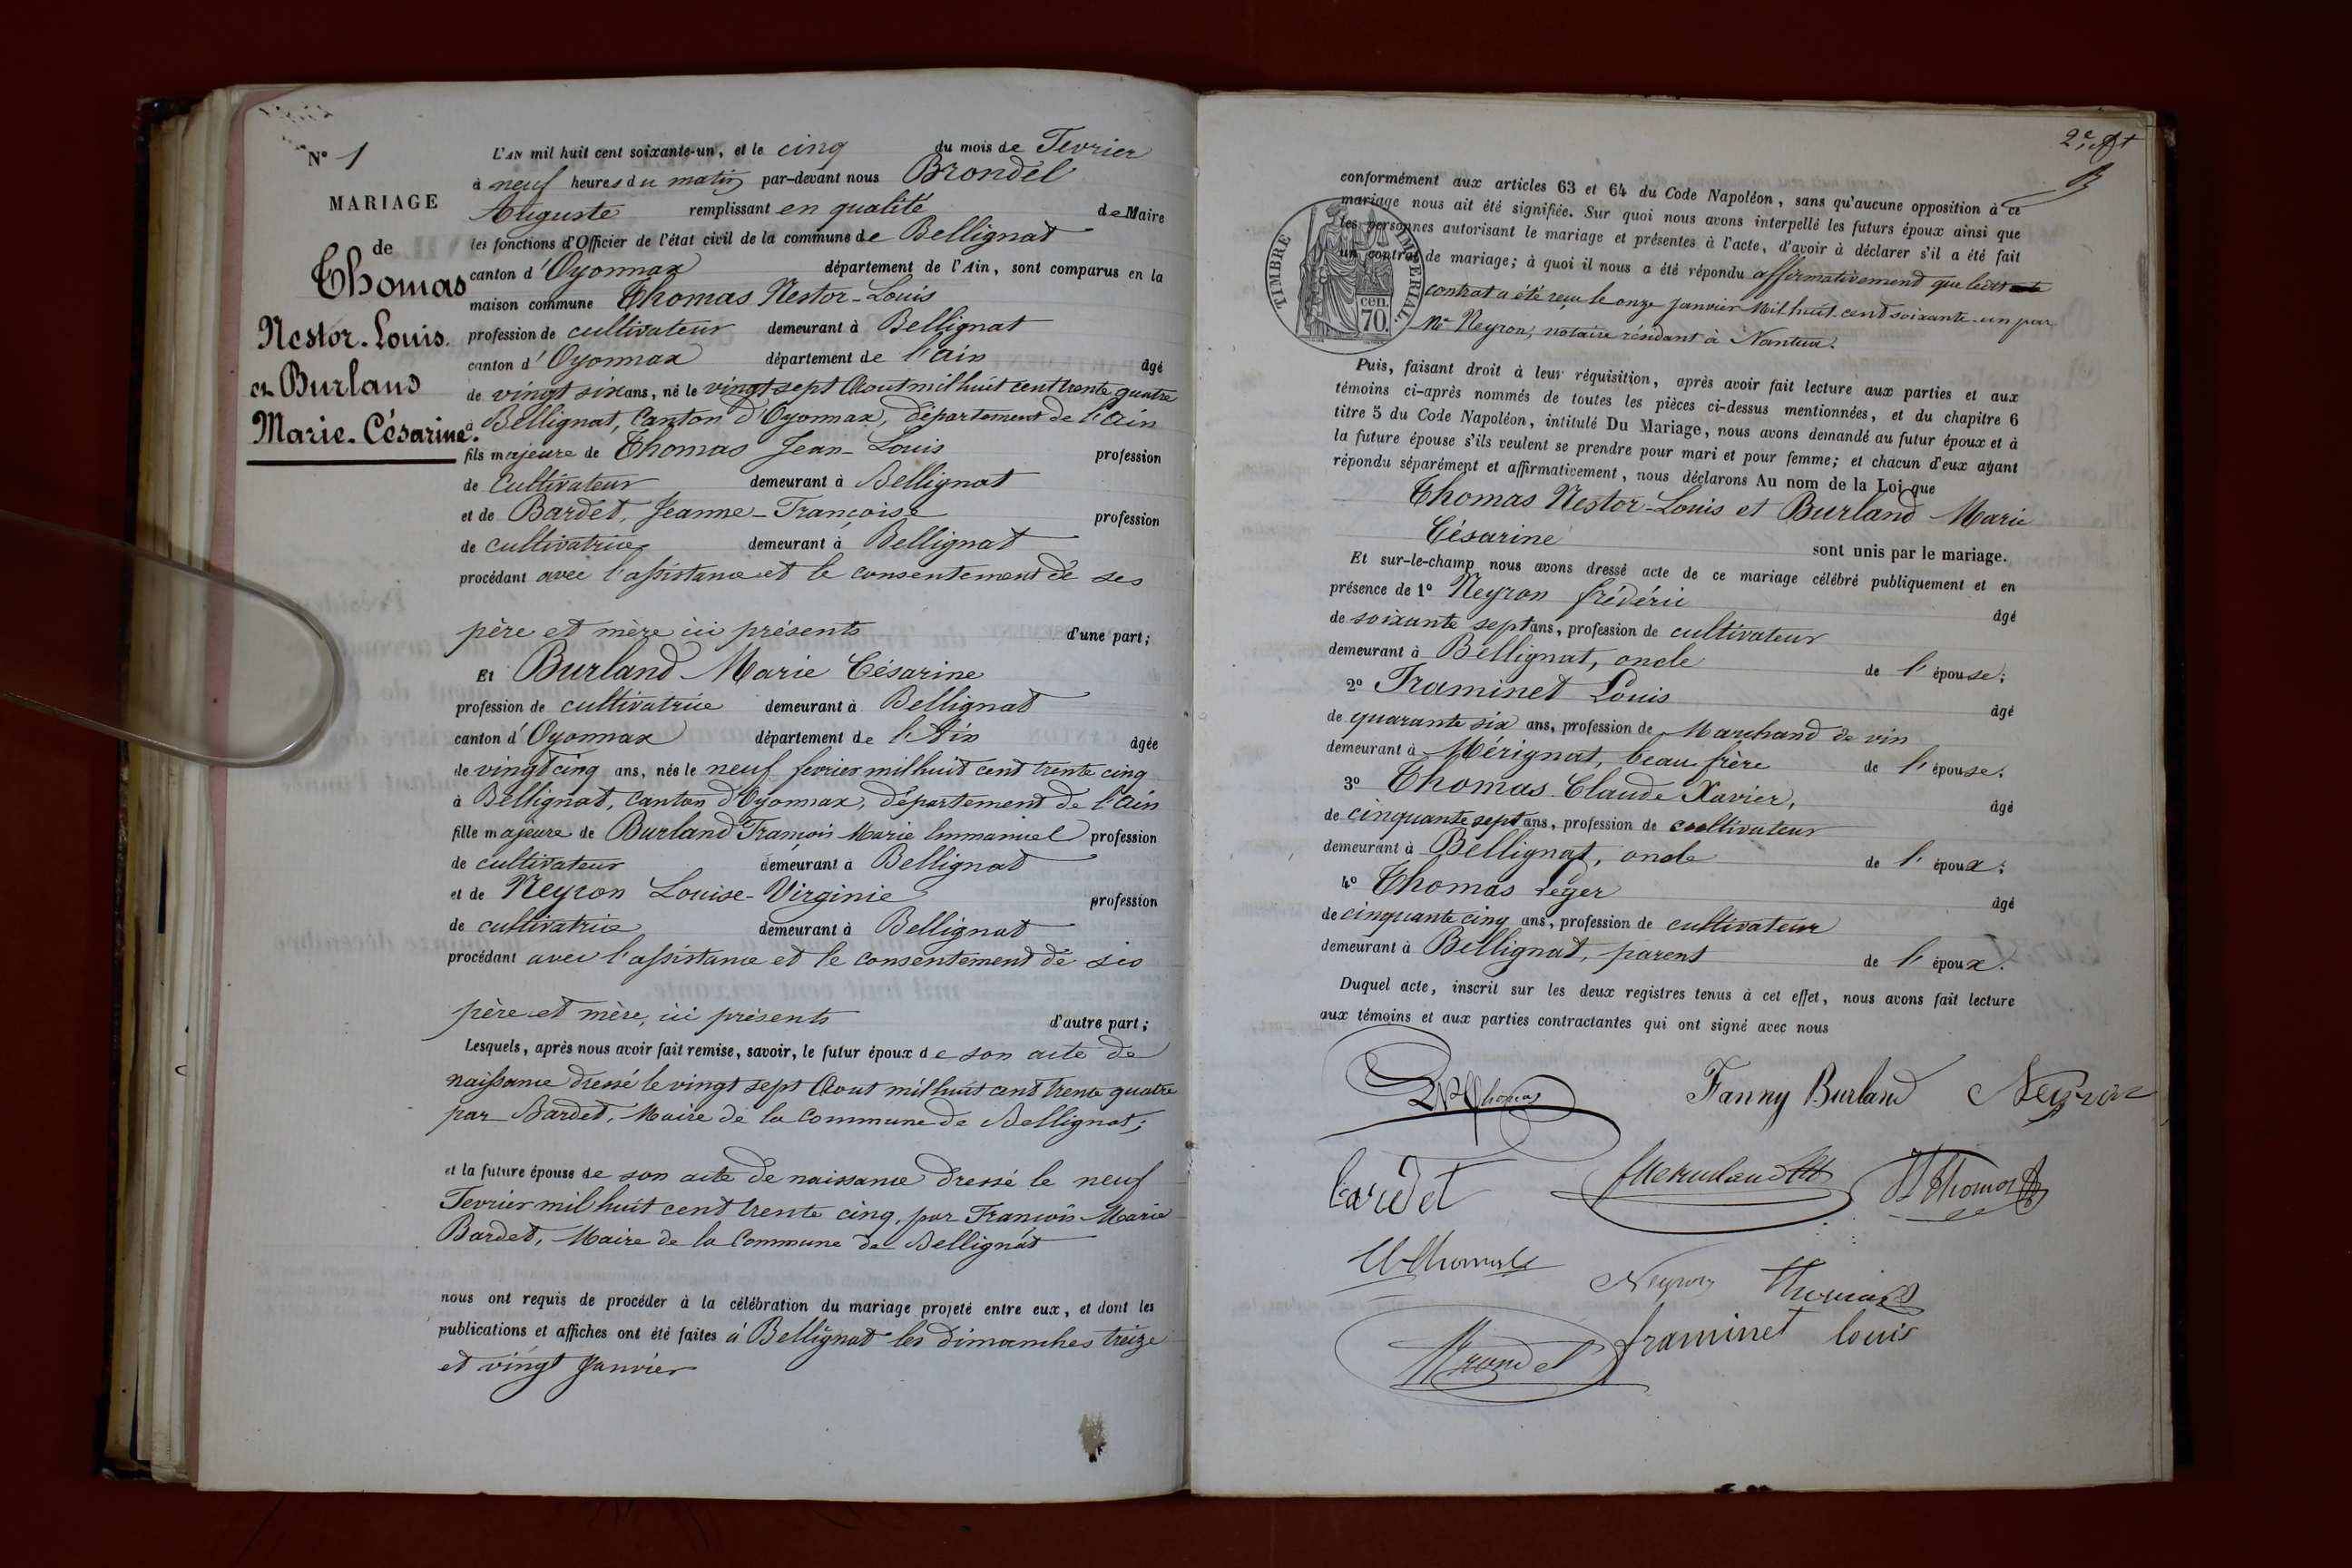 N° 1
MARIAGE
de
Thomas
Nestor-Louis.
et Burland
Marie-Césarine.
L'AN mil huit cent soixante-un, et le cinq du mois de Fevrier
à neuf heures du matin par-devant nous Brondel
Auguste remplissant en qualité de Maire
les fonctions d'Officier de l'état civil de la commune de Bellignat
canton d'Oyonnax département de l'Ain, sont comparus en la
maison commune Thomas Nestor-Louis
profession de cultivateur demeurant à Bellignat
canton d'Oyonnax département de l'ain âgé
de vingt six ans, né le vingt sept Aout mil huit cent trente quatre
à Bellignat, Canton d'Oyonnax, département de l'ain
fils majeure de Thomas Jean-Louis profession
de Cultivateur demeurant à Bellignat
et de Bardet, Jeanne-Françoise profession
de cultivatrice demeurant à Bellignat
procédant avec l'assistance et le consentement de ses
père et mère ici présents d'une part;
Et Burland Marie Césarine
profession de cultivatrice demeurant à Bellignat
canton d'Oyonnax département de l'Ain âgée
de vingt cinq ans, née le neuf fevrier mil huit cent trente cinq
à Bellignat, canton d'Oyonnax, département de l'ain
fille majeure de Burland François-Marie Emmanuel profession
de cultivateur demeurant à Bellignat
et de Neyron Louise-Virginie profession
de cultivatrice demeurant à Bellignat
procédant avec l'assistance et le consentement de ses
père et mère, ici présents d'autre part;
Lesquels, après nous avoir fait remise, savoir, le futur époux de son acte de
naissance dressé le vingt sept Aout mil huit cent trente quatre
par Bardet, Maire de la Commune de Bellignat;
et la future épouse de son acte de naissance dressé le neuf
Fevrier mil huit cent trente cinq, par François-Marie
Bardet, Maire de la Commune de Bellignat
nous ont requis de procéder à la célébration du mariage projeté entre eux, et dont les
publications et affiches ont été faites à Bellignat les dimanches treize
et vingt Janvier
conformément aux articles 63 et 64 du Code Napoléon, sans qu'aucune opposition à ce
mariage nous ait été signifiée. Sur quoi nous avons interpellé les futurs époux ainsi que
les personnes autorisant le mariage et présentes à l'acte, d'avoir à déclarer s'il a été fait
un contrat de mariage; à quoi il nous a été répondu affirmativement que ledit
contrat a été reçu le onze janvier Mil huit cent soixante-un par
Me Neyron, notaire résidant à Nantua.
TIMBRE IMPERIAL.
cen.
70.
Puis, faisant droit à leur réquisition, après avoir fait lecture aux parties et aux
témoins ci-après nommés de toutes les pièces ci-dessus mentionnées, et du chapitre 6
titre 5 du Code Napoléon, intitulé Du Mariage, nous avons demandé au futur époux et à
la future épouse s'ils veulent se prendre pour mari et pour femme; et chacun d'eux ayant
répondu séparément et affirmativement, nous déclarons Au nom de la Loi que
Thomas Nestor-Louis et Burland Marie
Césarine sont unis par le mariage.
Et sur-le-champ nous avons dressé acte de ce mariage célébré publiquement et en
présence de 1° Neyron frédéric âgé
de soixante sept ans, profession de cultivateur
demeurant à Bellignat, oncle de l'épouse;
2° Framinet Louis âgé
de quarante six ans, profession de Marchand de vin
demeurant à Mérignat, beau frère de l'épouse;
3° Thomas Claude Xavier, âgé
de cinquante sept ans, profession de cultivateur
demeurant à Bellignat, oncle de l'époux;
4° Thomas Léger âgé
de cinquante cinq ans, profession de cultivateur
demeurant à Bellignat, parent de l'époux.
Duquel acte, inscrit sur les deux registres tenus à cet effet, nous avons fait lecture
aux témoins et aux parties contractantes qui ont signé avec nous
Thomas Fanny Burland Neyron
Bardet Thomas
Thomas
Neyron Thomas
Brondel framinet louis